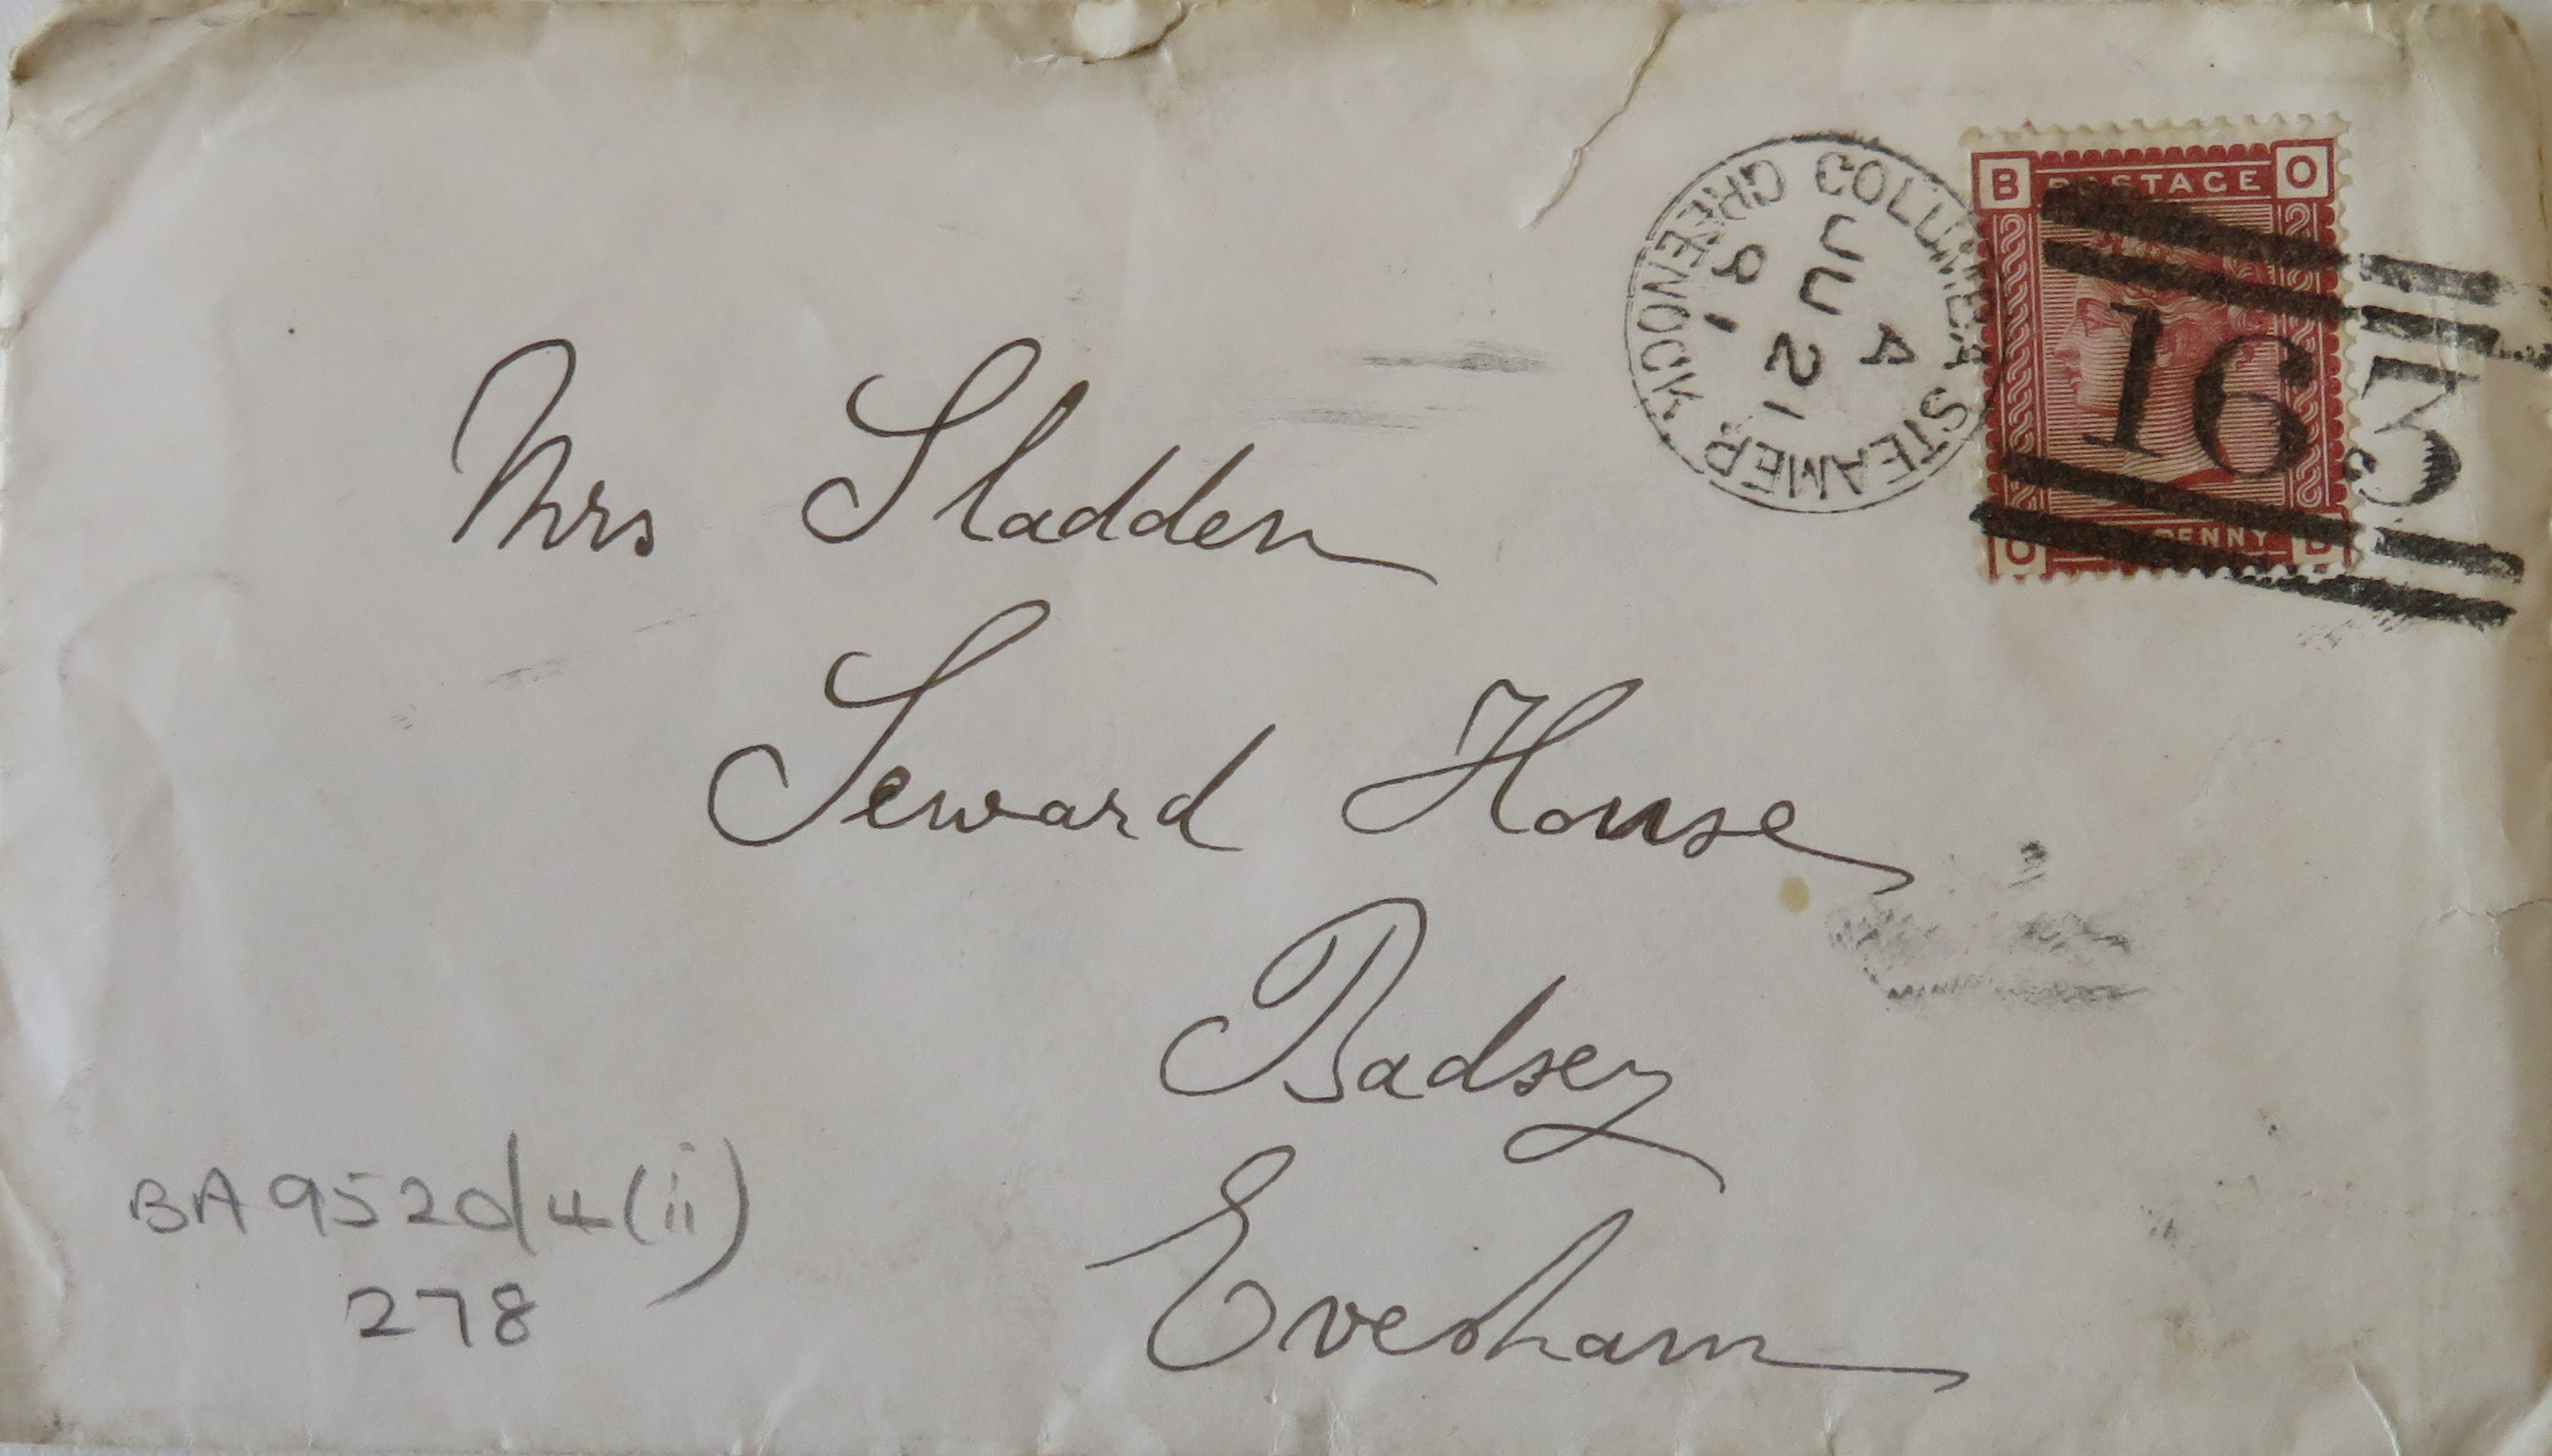 B POSTAGE O
163
O PENNY B
COLUMBA STEAMER
GREENOCK
A
JU 21
81
Mrs Sladden
Seward House
Badsey
Evesham
BA 9520/4(ii)
278